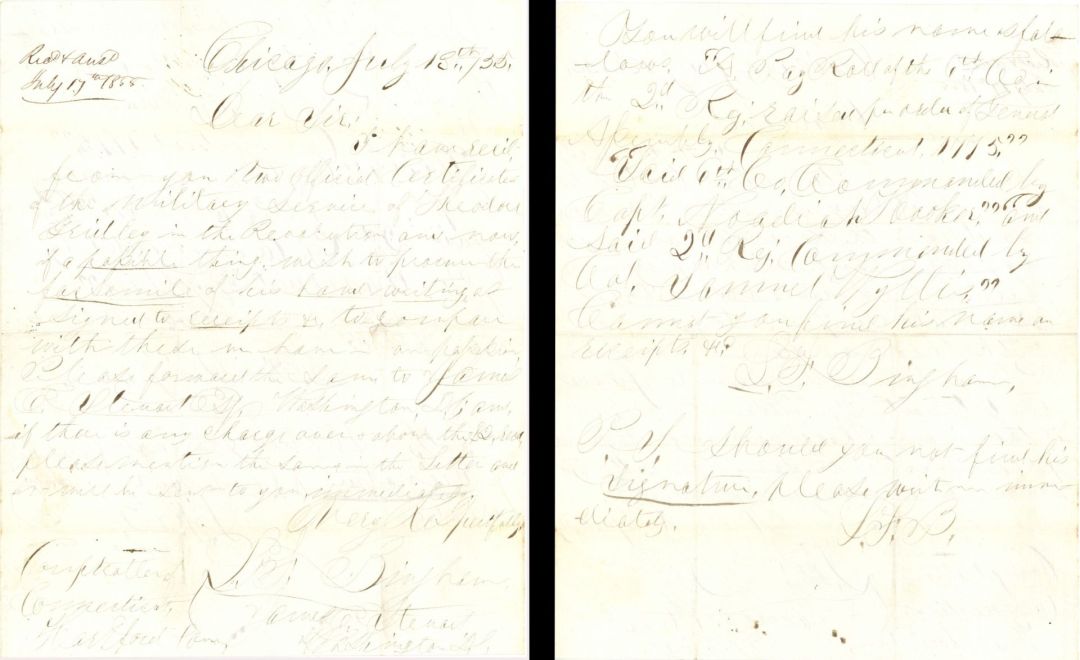 Recd & ansd
July 17th 1855
Chicago July 12th /55.
Dear Sir,
I have recd.
from you two official Certificates
of the Military Service of Theodore
in the Revolution and now
if a possible thing, wish to procure the
facsimile of his hand writing as
signed to receipts &c, to compare
with those we have in our possession
Please forward the same to James
E. Stewart Esq, Washington, and
if there is any charge over & above the
please mention the same in the letter and
it will be sent to you immediately.
Very Respectfully
Bingham
Comptroller of
Connecticut,
Hartford Conn,
James E Stewart
Washington
You will find his name as fol-
-lows. Pay Roll of the Co in
the 2d Reg, raised per order of General
Assembly, Connecticut, 1775."
Said Co, Commanded by
Capt. Noadiah Hooker," and
Said 2d Reg, Commanded by
Col. Samuel Wyllis,"
Cannot you find his name on
receipts &c
Bingham,
P. S. Should you not find his
signature, please write me imme-
diately.